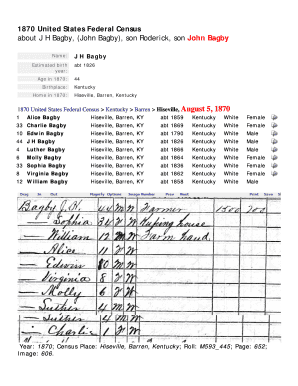 1870 United States Federal Census
about J H Bagby, (John Bagby), son Roderick, son John Bagby
Name: J H Bagby
Estimated birth year: abt 1826
Age in 1870: 44
Birthplace: Kentucky
Home in 1870: Hiseville, Barren, Kentucky
1870 United States Federal Census > Kentucky > Barren > Hiseville, August 5, 1870
1 Alice Bagby Hiseville, Barren, KY abt 1859 Kentucky White Female
33 Charlie Bagby Hiseville, Barren, KY abt 1869 Kentucky White Female
10 Edwin Bagby Hiseville, Barren, KY abt 1790 Kentucky White Male
44 J H Bagby Hiseville, Barren, KY abt 1826 Kentucky White Male
4 Luther Bagby Hiseville, Barren, KY abt 1866 Kentucky White Male
6 Molly Bagby Hiseville, Barren, KY abt 1864 Kentucky White Female
33 Sophia Bagby Hiseville, Barren, KY abt 1836 Kentucky White Female
8 Virginia Bagby Hiseville, Barren, KY abt 1862 Kentucky White Female
12 William Bagby Hiseville, Barren, KY abt 1858 Kentucky White Male
Bagby J. H. 44 M W Farmer 1500 700
— Sophia 34 F W Keeping house
— William 12 M W Farm hand
— Alice 11 F W
— Edwin 10 M W
— Virginia 8 F W
— Molly 6 F W
— Luther 4 M W
— Charlie 1 F W
Year: 1870; Census Place: Hiseville, Barren, Kentucky; Roll: M593_445; Page: 652;
Image: 606.